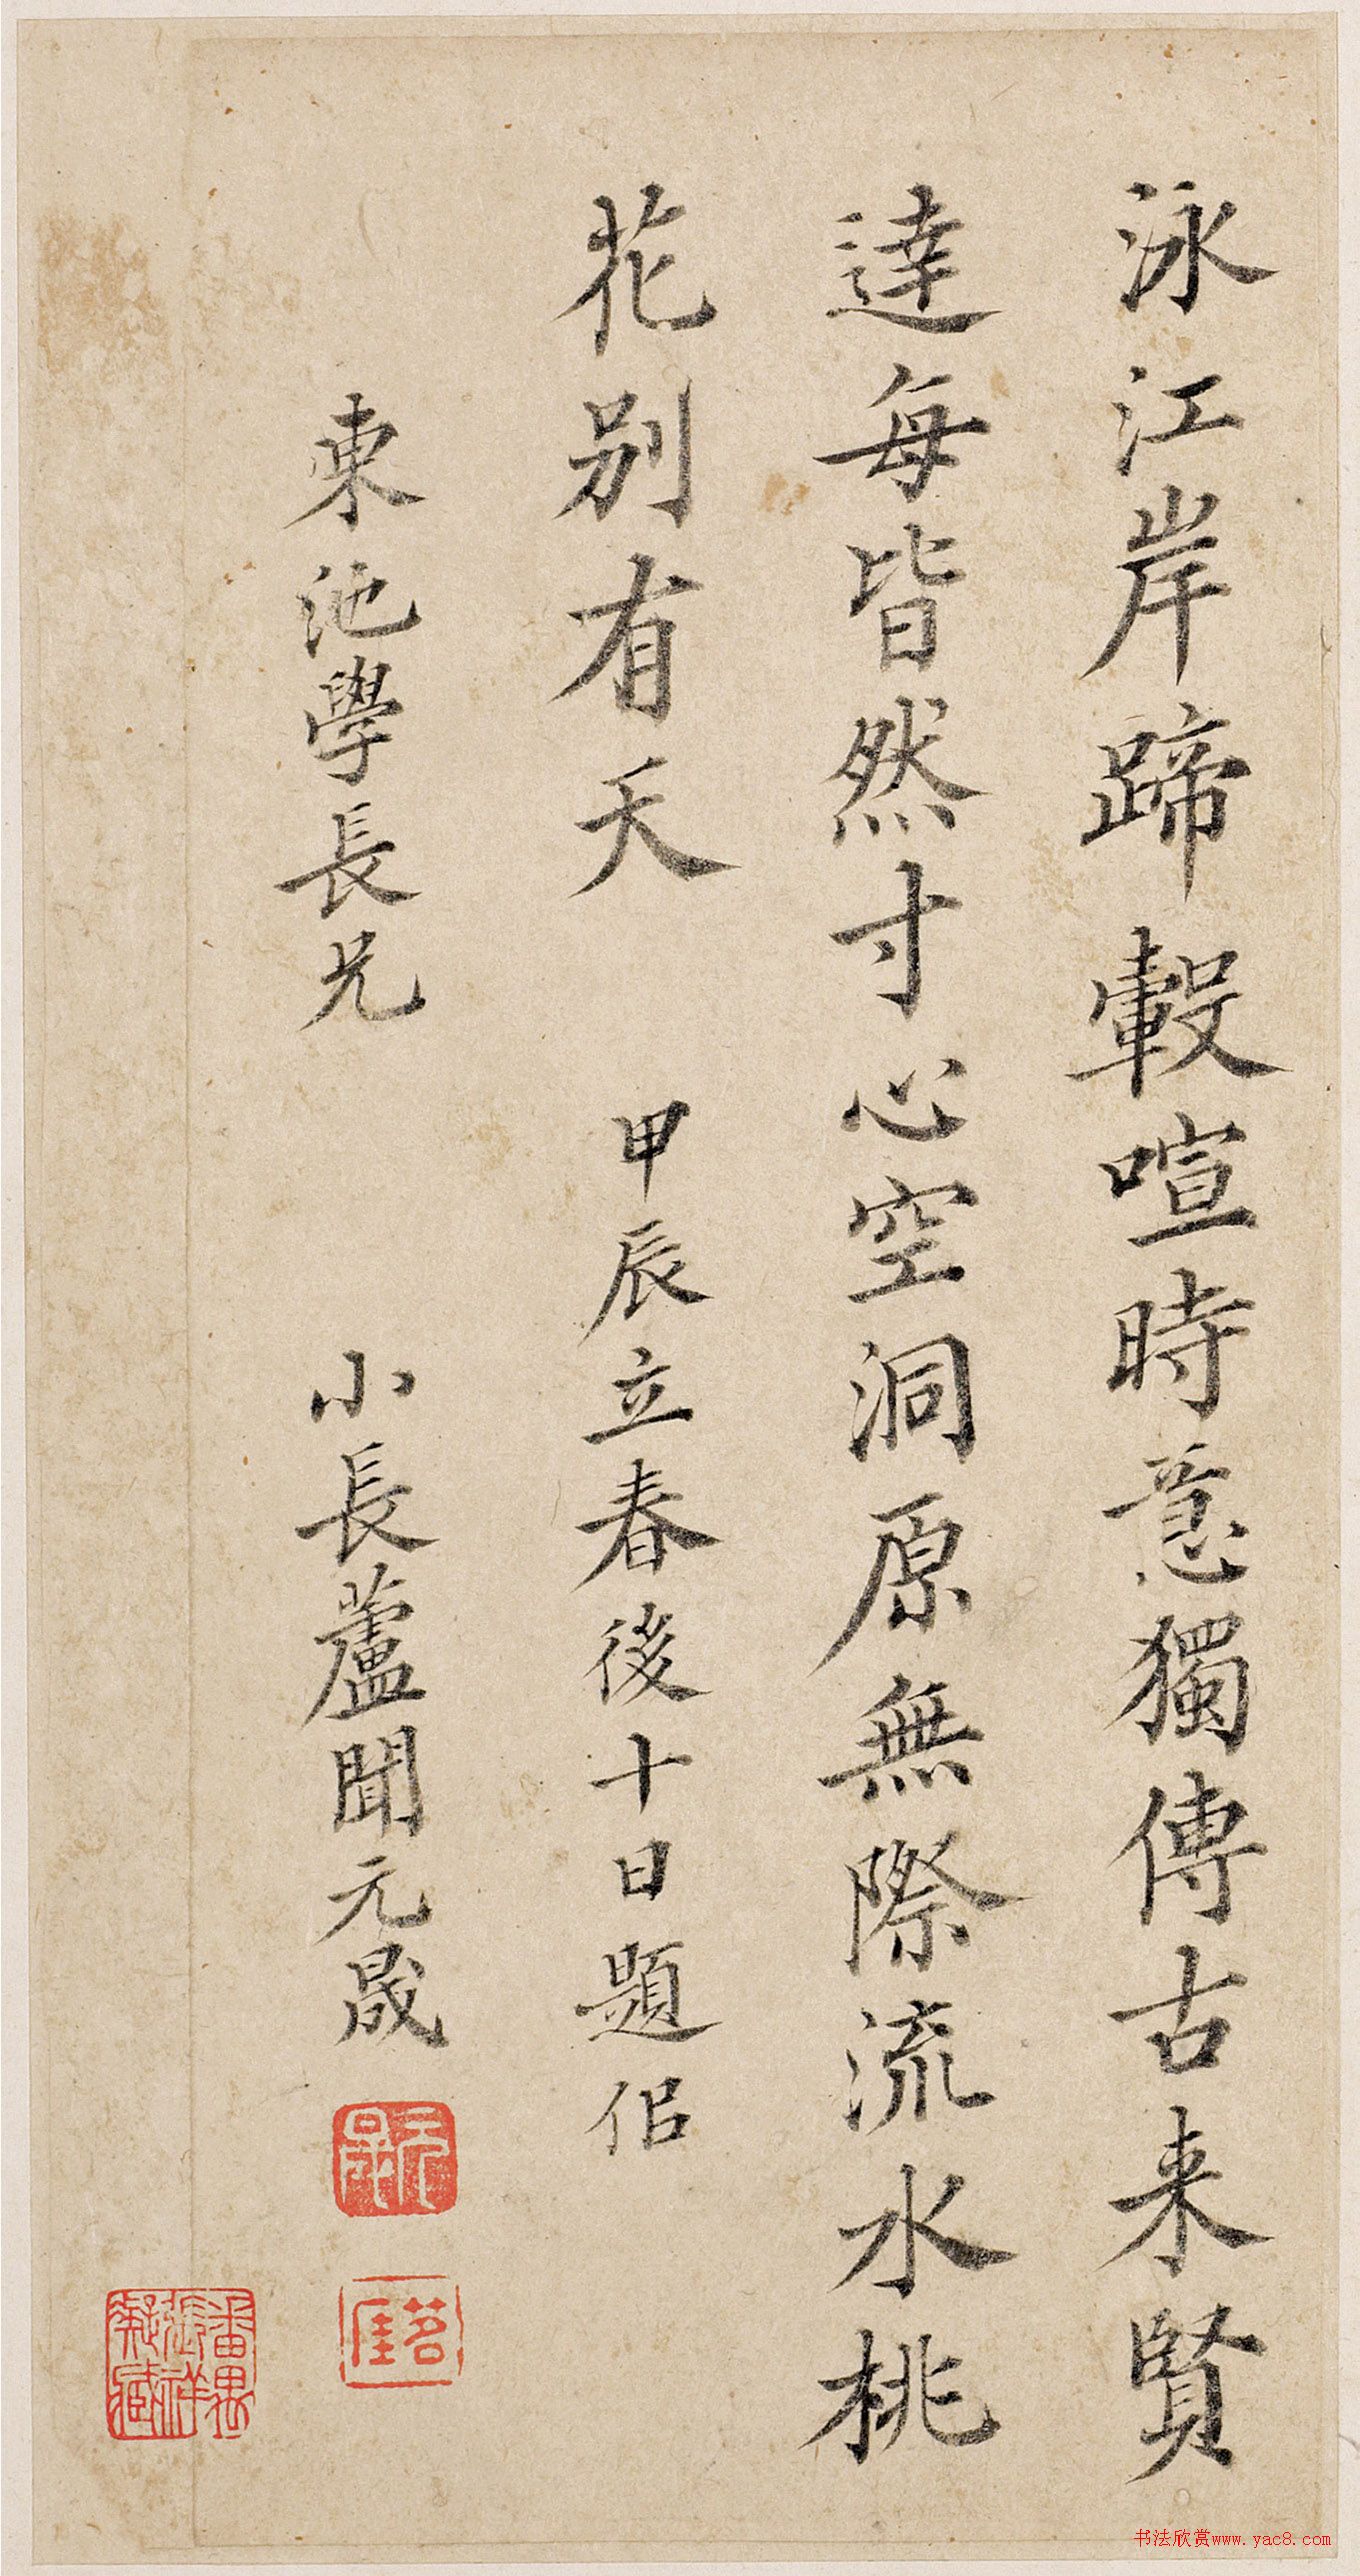 泳江岸蹄轂喧時意獨傳古来賢
達每皆然寸心空洞原無際流水桃
花别有天 甲辰立春後十日題佀
東池學長兄 小長蘆聞元晟
元晟
番禺張祥凝臧
书法欣赏www.yac8.com